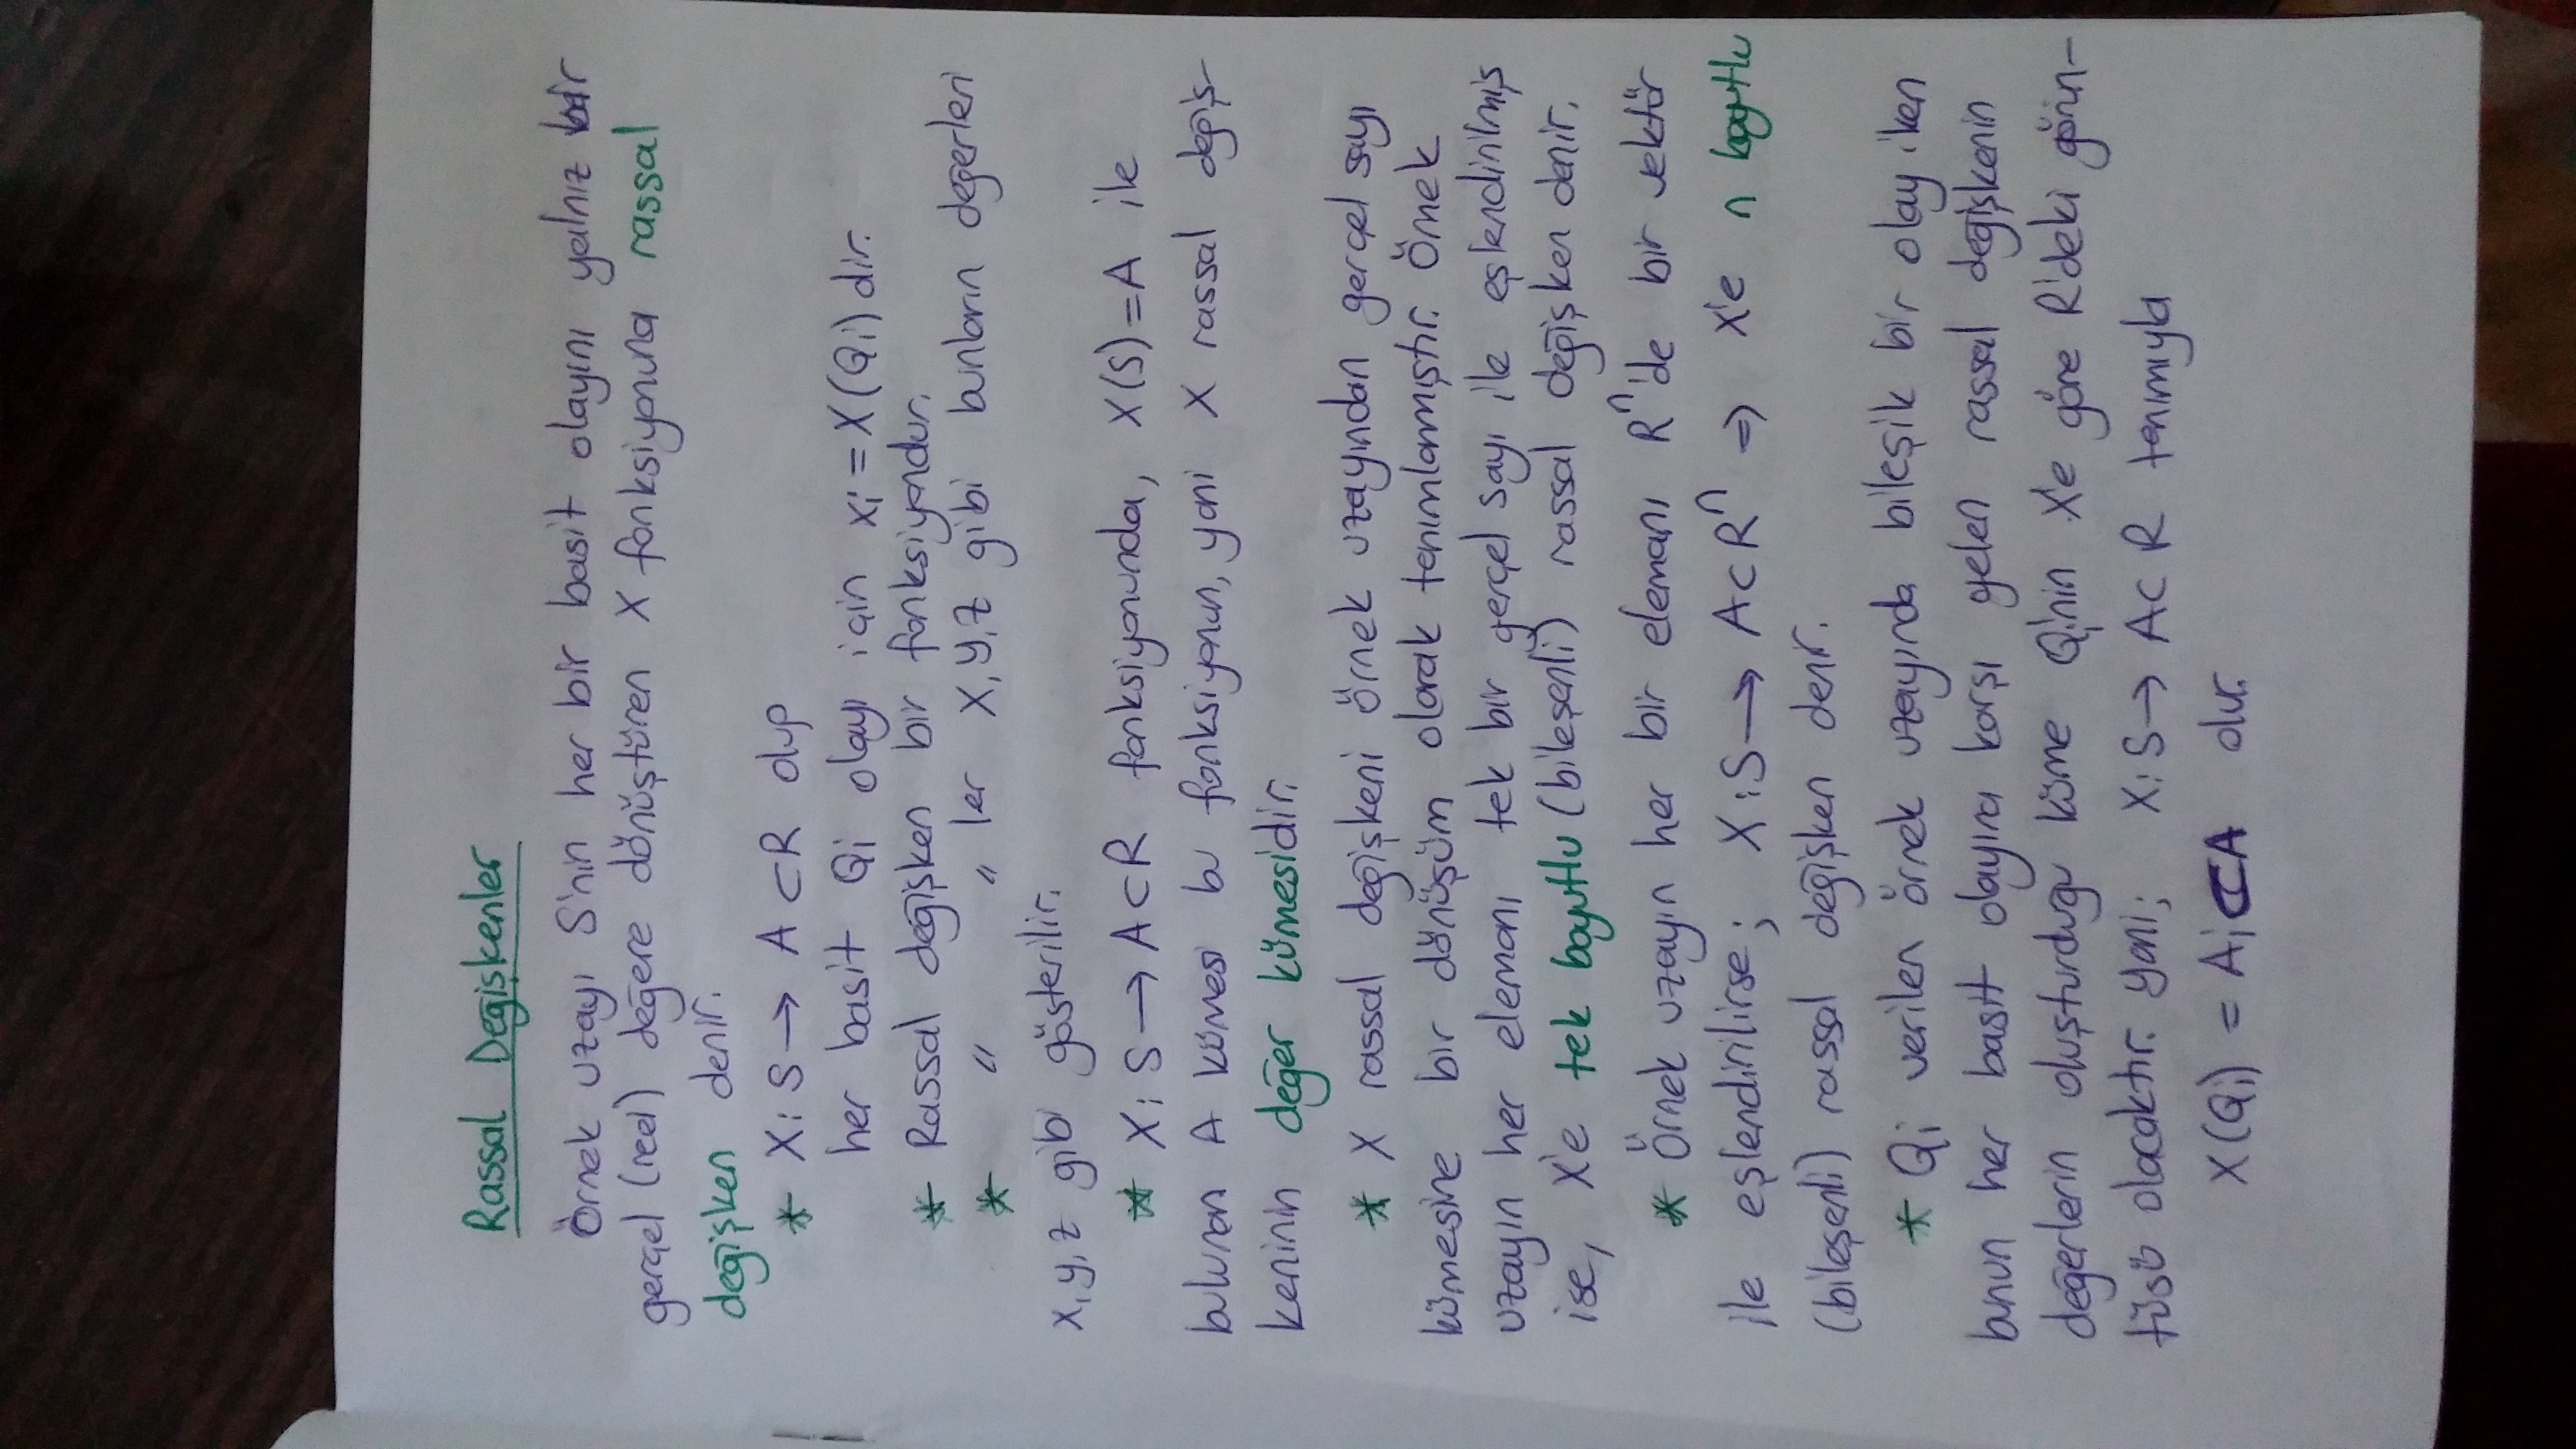 Rassal Değişkenler
Örnek uzayı S'nin her bir basit olayını yalnız bir
gerçel (reel) değere dönüştüren X fonksiyonuna rassal
değişken denir.
* X: S → A ⊂ R olup
her basit Qi olayı için xi = X(Qi) dir.
* Rassal değişken bir fonksiyondur.
* " " ler X, Y, Z gibi bunların değerleri
x, y, z gibi gösterilir.
* X: S → A ⊂ R fonksiyonunda, X(S) = A ile
bulunan A kümesi bu fonksiyonun, yani X rassal değiş-
keninin değer kümesidir.
* X rassal değişkeni örnek uzayından gerçel sayı
kümesine bir dönüşüm olarak tanımlanmıştır. Örnek
uzayın her elemanı tek bir gerçel sayı ile eşlendirilmiş
ise, X'e tek boyutlu (bileşenli) rassal değişken denir.
* Örnek uzayın her bir elemanı Rⁿ'de bir vektör
ile eşlendirilirse; X: S → A ⊂ Rⁿ ⇒ X'e n boyutlu
(bileşenli) rassal değişken denir.
* Qi verilen örnek uzayında bileşik bir olay iken
bunun her basit olayına karşı gelen rassal değişkenin
değerlerin oluşturduğu küme Qi'nin X'e göre R'deki görün-
tüsü olacaktır. Yani; X: S → A ⊂ R tanımıyla
X(Qi) = Ai ⊂ A olur.